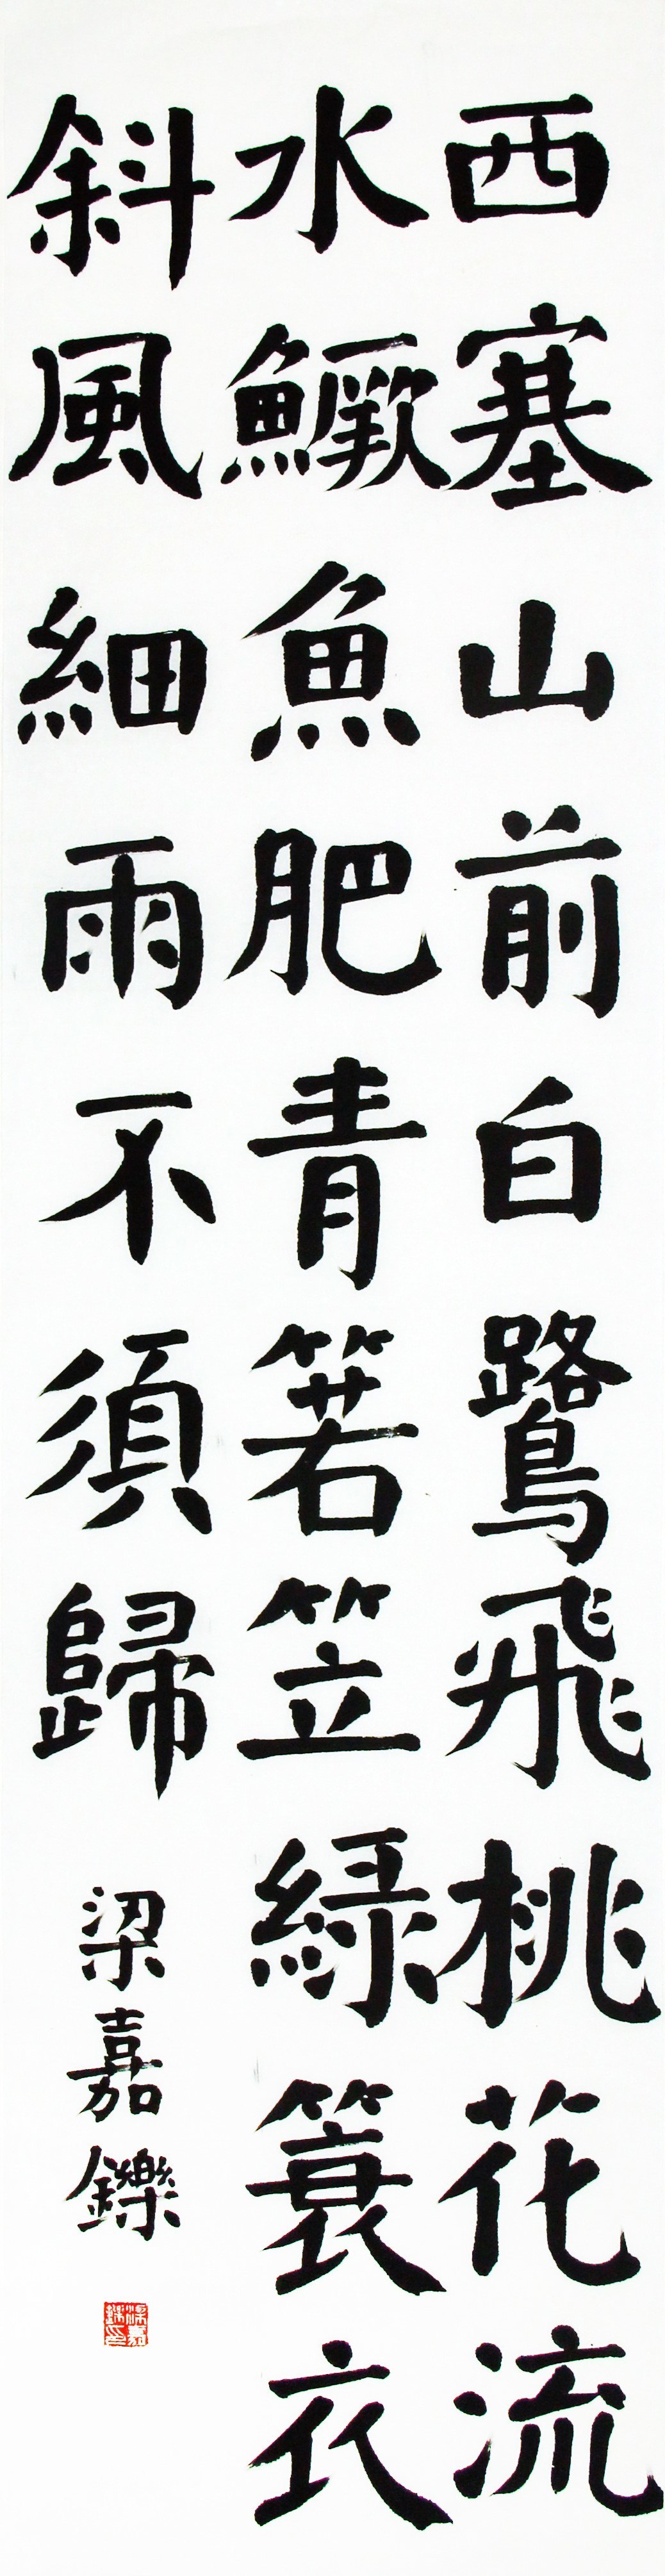 西塞山前白鷺飛桃花流
水鱖魚肥青箬笠綠簑衣
斜風細雨不須歸
梁嘉鑠